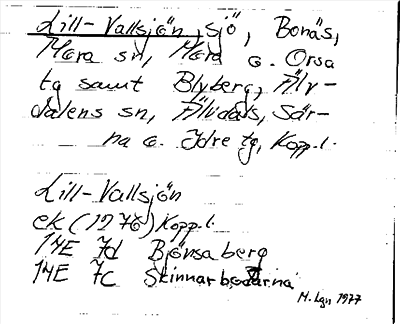 Lill-Vallsjön, sjö, Bonäs,
Mora sn, Mora o. Orsa
tg samt Blyberg, Älv-
dalens sn, Älvdals, Sär-
na o. Idre tg, Kopp.l.
Lill-Vallsjön
ek (1976) Kopp.l.
14E 7d Björsaberg
14E 7c Skinnarbodarna
M. Lgn 1977